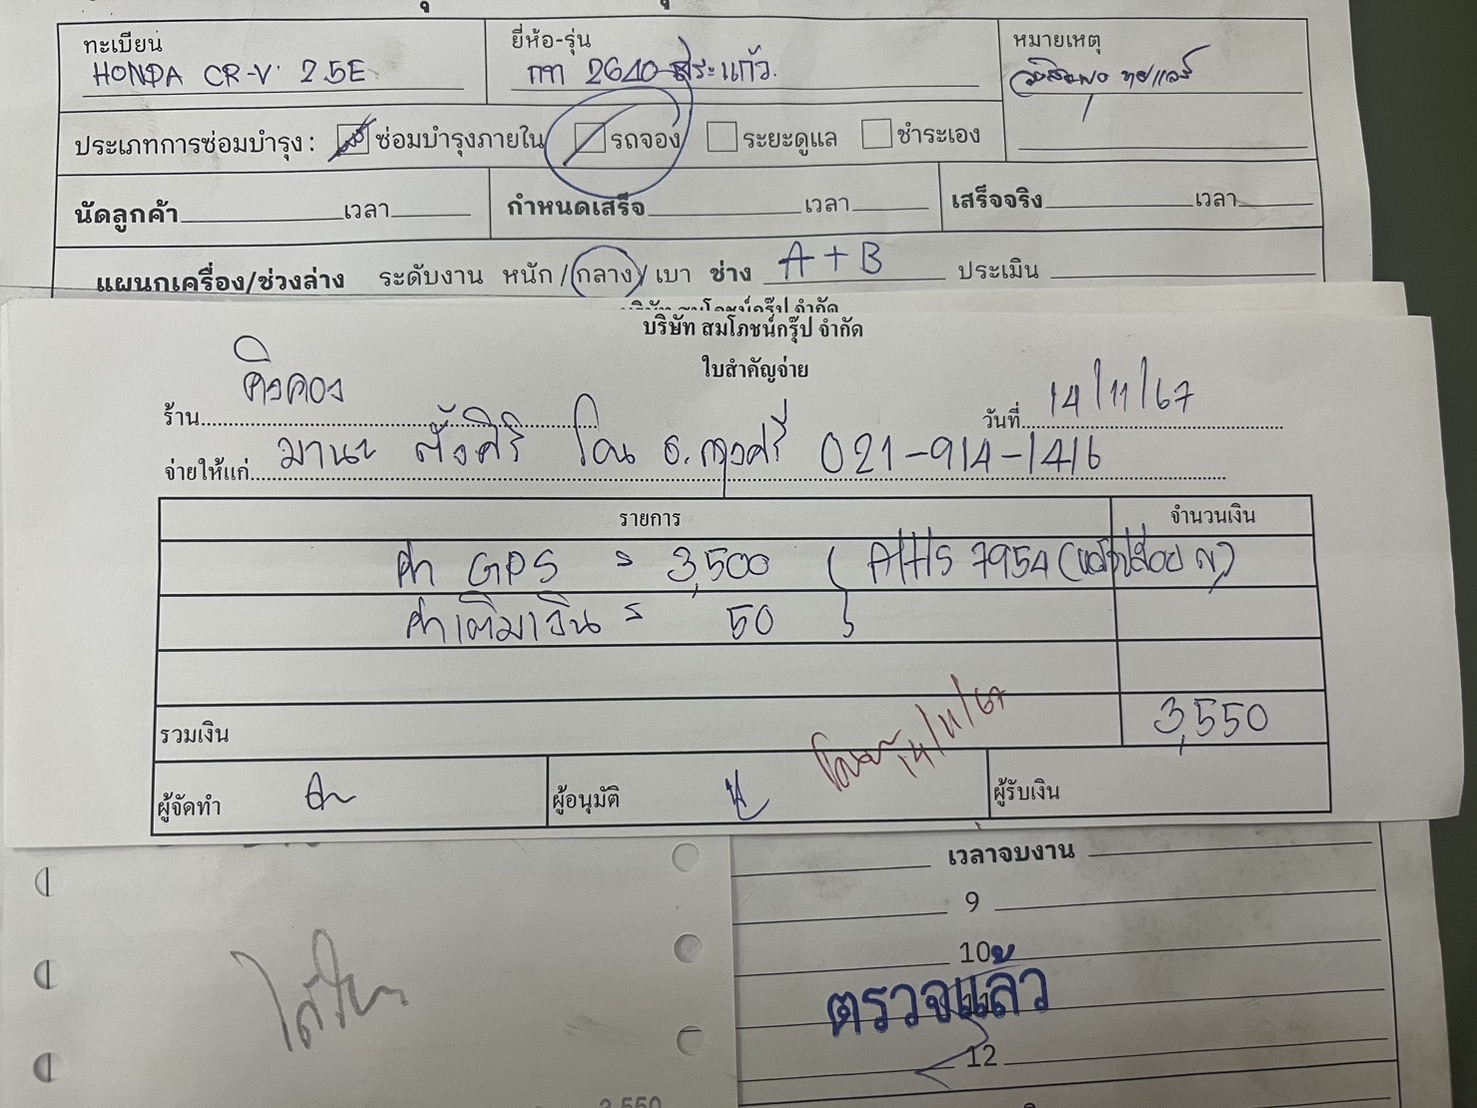 ทะเบียน ยี่ห้อ-รุ่น หมายเหตุ
HONDA CR-V 2.5E กท 2640 สระแก้ว
ประเภทการซ่อมบำรุง : ซ่อมบำรุงภายใน รถจอง ระยะดูแล ชำระเอง
นัดลูกค้า เวลา กำหนดเสร็จ เวลา เสร็จจริง เวลา
แผนกเครื่อง/ช่วงล่าง ระดับงาน หนัก / กลาง / เบา ช่าง A+B ประเมิน
บริษัท สมโภชน์กรุ๊ป จำกัด
บริษัท สมโภชน์กรุ๊ป จำกัด
ใบสำคัญจ่าย
ร้าน คิงคอง วันที่ 14/11/67
จ่ายให้แก่ มานะ ตั้งศิริ โอน ธ.กรุงศรี 021-914-1416
รายการ จำนวนเงิน
ค่า GPS = 3,500
ค่าเติมเงิน = 50
รวมเงิน 3,550
14/11/67
ผู้จัดทำ ผู้อนุมัติ ผู้รับเงิน
เวลาจบงาน
9
10
ตรวจแล้ว
12
3,550